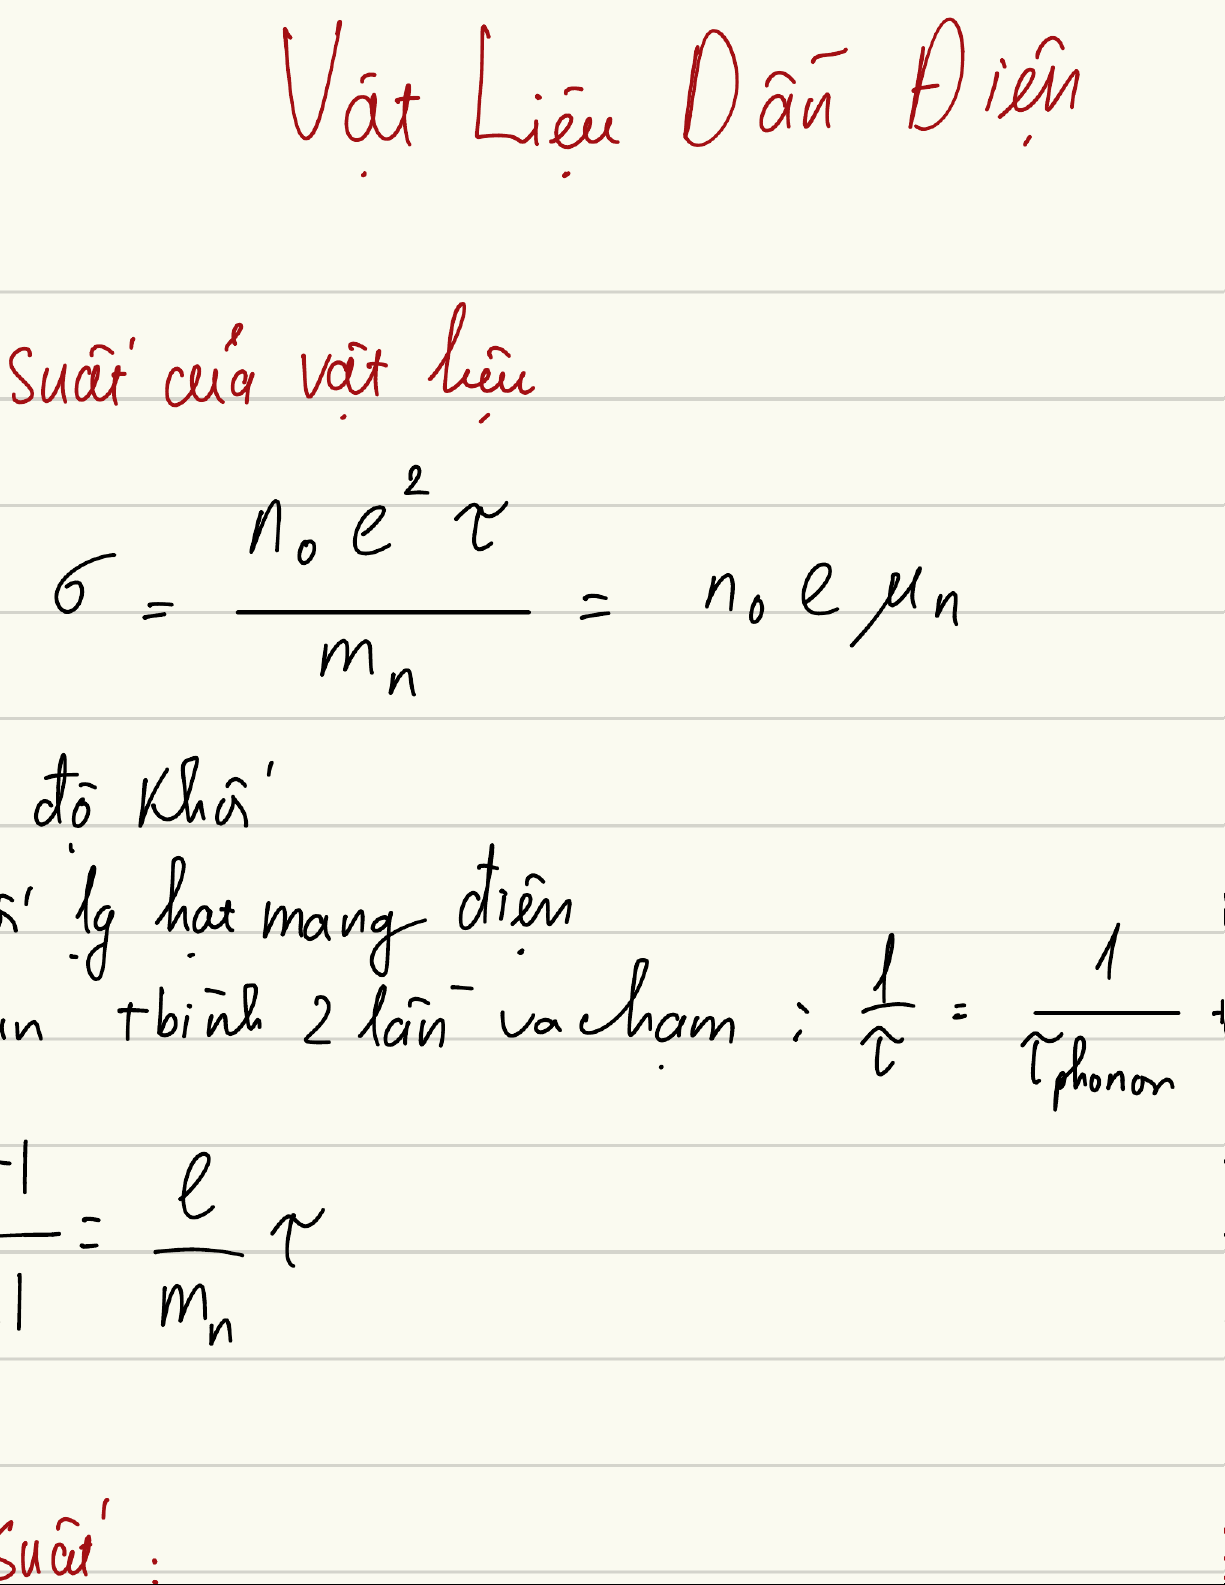 Vật Liệu Dẫn Điện
suất của vật liệu
σ = n₀ e² τ / mₙ = n₀ e μₙ
độ khối
lg hạt mang điện
tbình 2 lần va chạm : 1/τ = 1/τphonon +
= e/mₙ τ
suất :